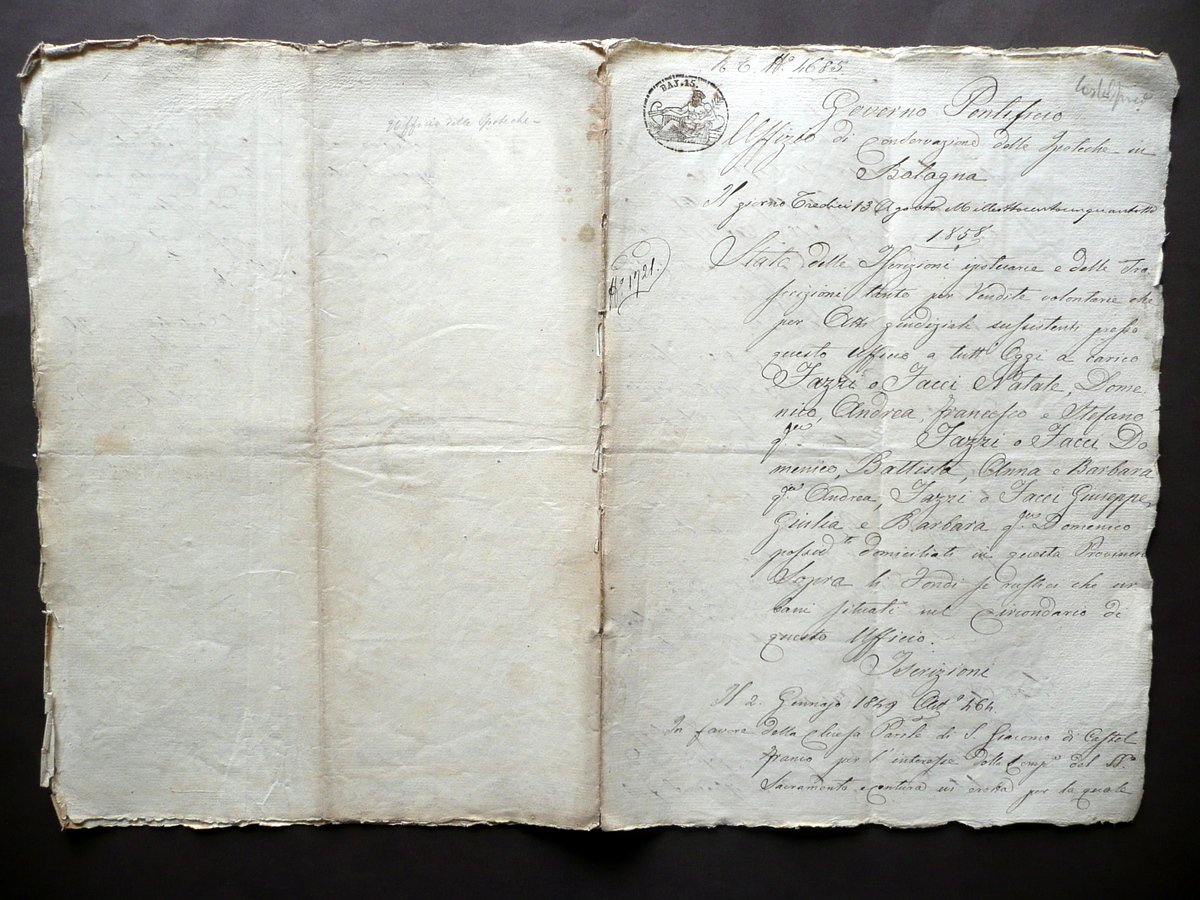 Ufficio delle Ipoteche
R. G. N.° 4685.
BAJ. 15.
Governo Pontificio
Uffizio di Conservazione delle Ipoteche in
Bologna
Il giorno Tredici 13 Agosto Milleottocentocinquantotto
1858
N.° 1721.
Stato delle Iscrizioni ipotecarie e delle Tra
scrizioni tanto per Vendite volontarie che
per Atti giudiziali sussistenti presso
questo Ufficio a tutt' Oggi a carico
Fazzi o Facci Natale, Dome
nico, Andrea, Francesco e Stefano
q.m Fazzi o Facci Do
menico, Battista, Anna e Barbara
q.m Andrea, Fazzi o Facci Giuseppe,
Giulia e Barbara q.m Domenico
possid.ti domiciliati in questa Provincia
Sopra li Fondi sì rustici che ur
bani situati nel Circondario di
questo Ufficio.
Iscrizioni
Il 2. Gennajo 1849 Art.° 464.
In favore della Chiesa Par.le di S. Giacomo di Castel
franco per l'interesse della Comp.a del SS.°
Sacramento e in per la quale